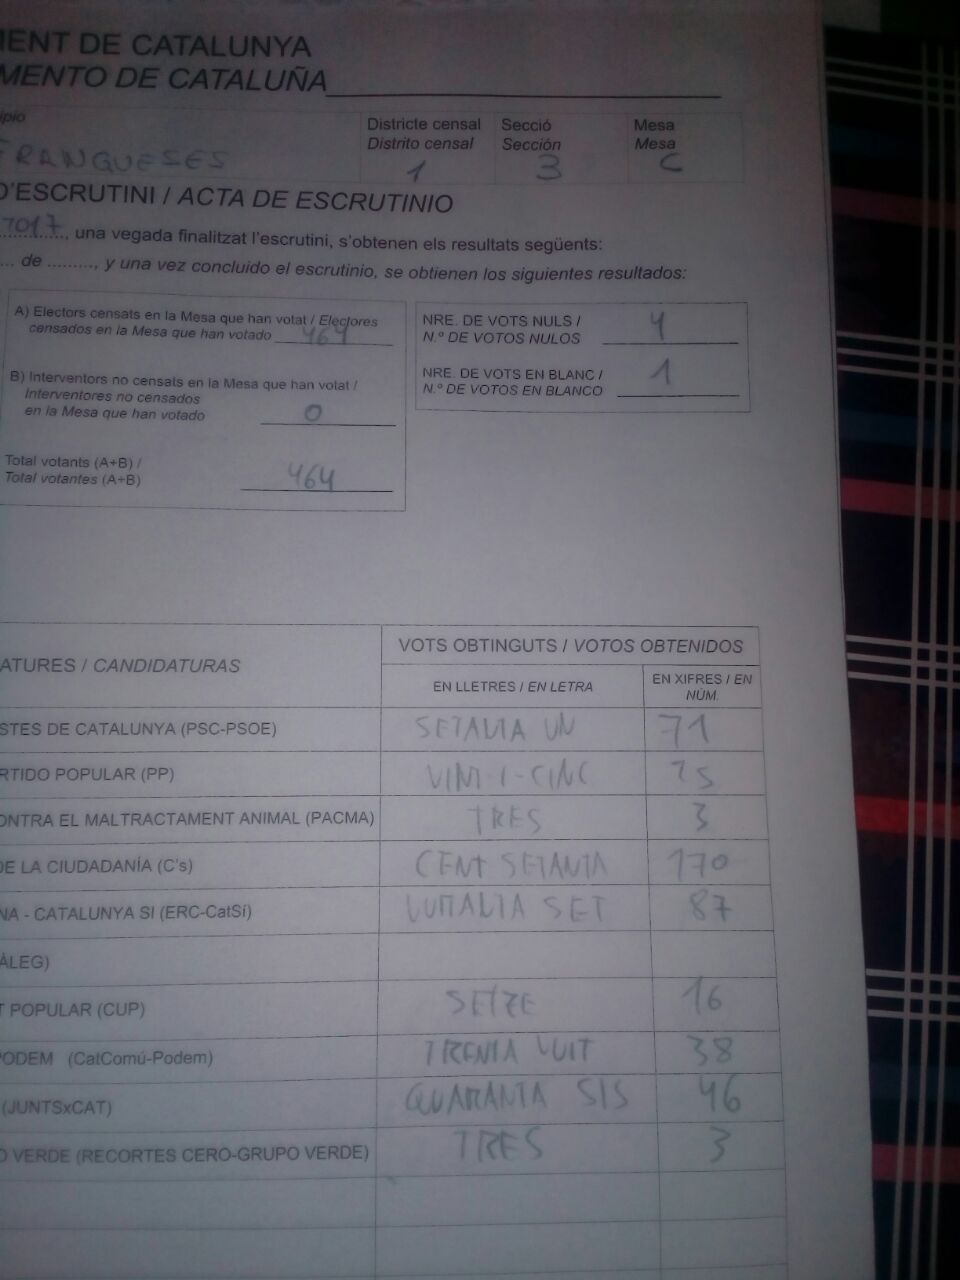 MENT DE CATALUNYA
MENTO DE CATALUÑA
ipio
Districte censal Secció Mesa
Distrito censal Sección Mesa
FRANQUESES 1 3 C
D'ESCRUTINI / ACTA DE ESCRUTINIO
2017, una vegada finalitzat l'escrutini, s'obtenen els resultats següents:
... de ........., y una vez concluido el escrutinio, se obtienen los siguientes resultados:
A) Electors censats en la Mesa que han votat / Electores
censados en la Mesa que han votado 464
B) Interventors no censats en la Mesa que han votat /
Interventores no censados
en la Mesa que han votado 0
Total votants (A+B) /
Total votantes (A+B) 464
NRE. DE VOTS NULS / 4
N.º DE VOTOS NULOS
NRE. DE VOTS EN BLANC / 1
N.º DE VOTOS EN BLANCO
ATURES / CANDIDATURAS
VOTS OBTINGUTS / VOTOS OBTENIDOS
EN LLETRES / EN LETRA
EN XIFRES / EN
NÚM.
STES DE CATALUNYA (PSC-PSOE) SETANTA UN 71
RTIDO POPULAR (PP) VINT-I-CINC 25
ONTRA EL MALTRACTAMENT ANIMAL (PACMA) TRES 3
DE LA CIUDADANÍA (C's) CENT SETANTA 170
NA - CATALUNYA SI (ERC-CatSí) VUITANTA SET 87
ÀLEG)
T POPULAR (CUP) SETZE 16
PODEM (CatComú-Podem) TRENTA VUIT 38
(JUNTSxCAT) QUARANTA SIS 46
O VERDE (RECORTES CERO-GRUPO VERDE) TRES 3